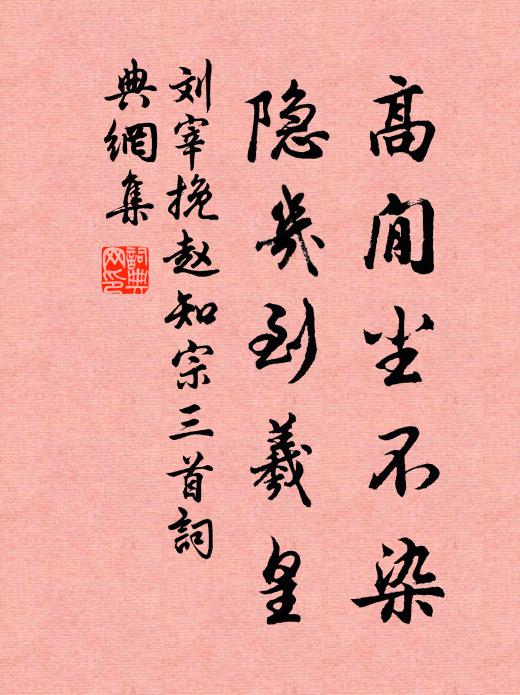 高闲尘不染
隐几到羲皇
刘宰挽赵知宗三首詞
典網集
詞典网印